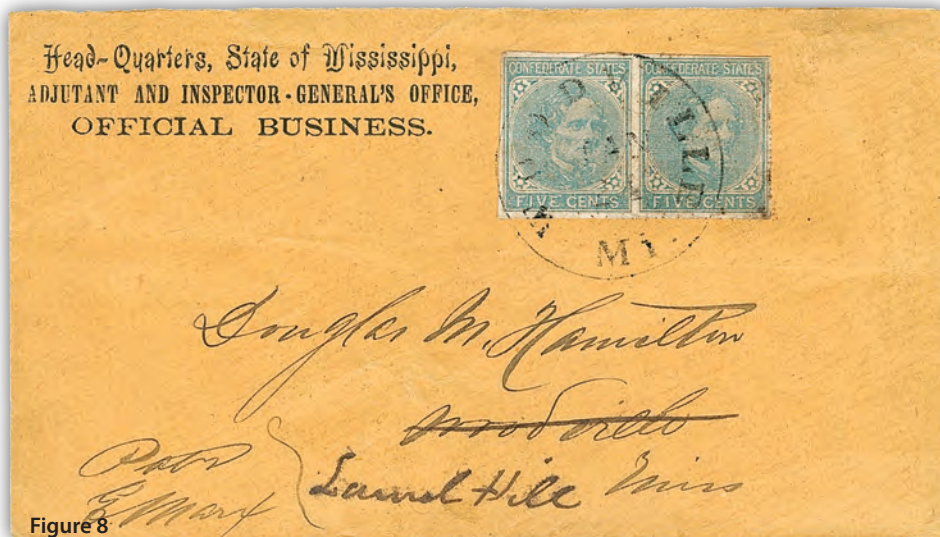 Head-Quarters, State of Mississippi,
ADJUTANT AND INSPECTOR-GENERAL'S OFFICE,
OFFICIAL BUSINESS.
CONFEDERATE STATES CONFEDERATE STATES
FIVE CENTS FIVE CENTS
MI.
Douglas M. Hamilton
Woodville
Laurel Hill Miss
Figure 8